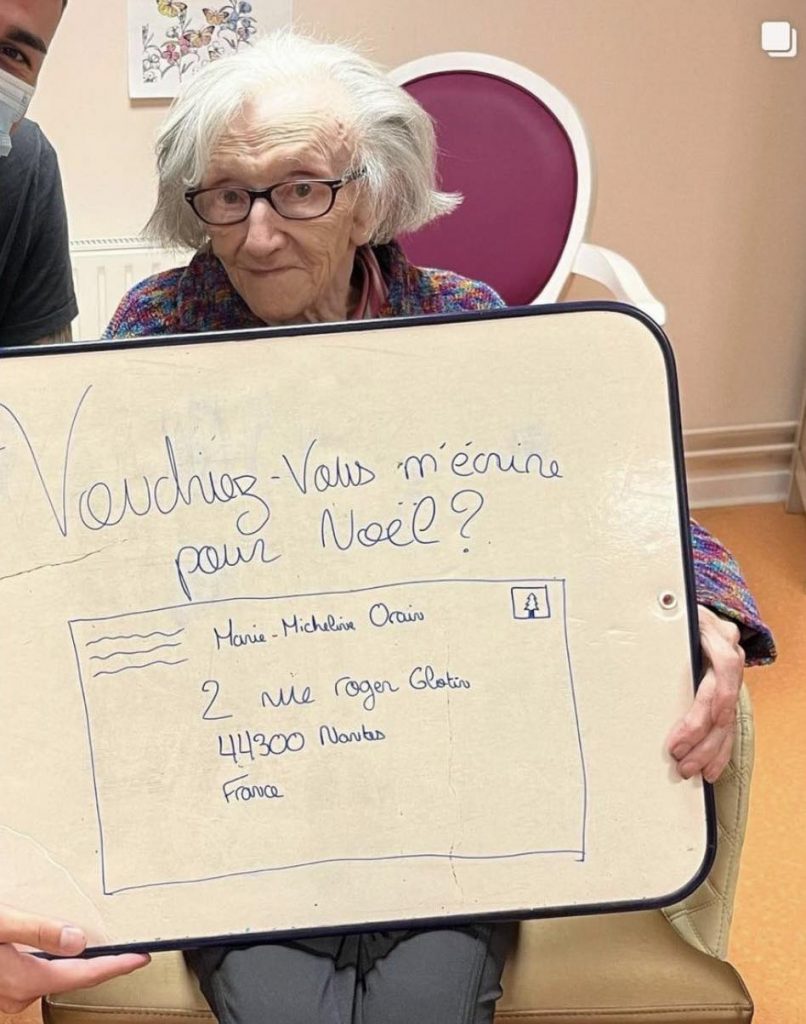 Voudriez-Vous m'écrire
pour Noël ?
Marie-Micheline Orain
2 rue roger Glotin
44300 Nantes
France